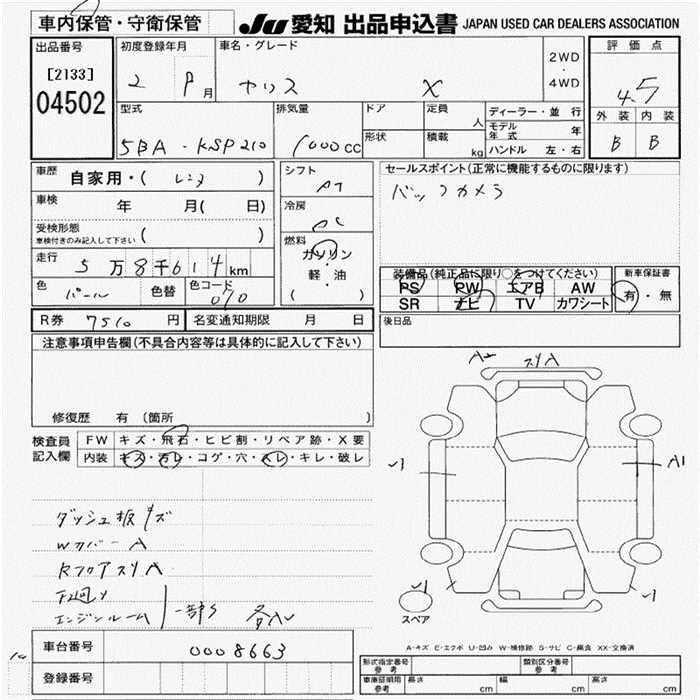 車内保管・守衛保管
JU 愛知 出品申込書 JAPAN USED CAR DEALERS ASSOCIATION
出品番号
[2133]
04502
初度登録年月
2 9月
車名・グレード
ヤリス X
2WD
・
4WD
評価点
4.5
外装 内装
B B
型式
5BA-KSP210
排気量
1000cc
ドア
形状
定員 人
積載 kg
ディーラー・並行
モデル年式 年
ハンドル 左・右
車歴
自家用・( レンタ )
車検 年 月( 日)
受検形態
車検付きのみ記入して下さい ( )
走行 5万8千614km
色 パール 色替 色コード 070
シフト
AT
冷房
AC
燃料
ガソリン
・
軽・油
( )
セールスポイント(正常に機能するものに限ります)
バックカメラ
装備品(純正品に限り○をつけてください)
PS PW エアB AW
SR ナビ TV カワシート
新車保証書
有・無
R券 7510 円 名変通知期限 月 日
後日品
注意事項申告欄(不具合内容等は具体的に記入して下さい)
修復歴 有 (箇所 )
検査員
記入欄
FW キズ・飛石・ヒビ割・リペア跡・X要
内装 キズ・汚レ・コゲ・穴・スレ・キレ・破レ
ダッシュ板キズ
Wカバー A
Rフロアスリ A
下廻り
エンジンルーム 一部S
A2 スリA
√1 A1
√1 √1
スペア
A-キズ E-エクボ U-凹み W-補修跡 S-サビ C-腐食 XX-交換済
車台番号 0008663
登録番号
型式指定番号
参考
類別区分番号
参考
車庫証明用
参考
長さ cm 幅 cm 高さ cm